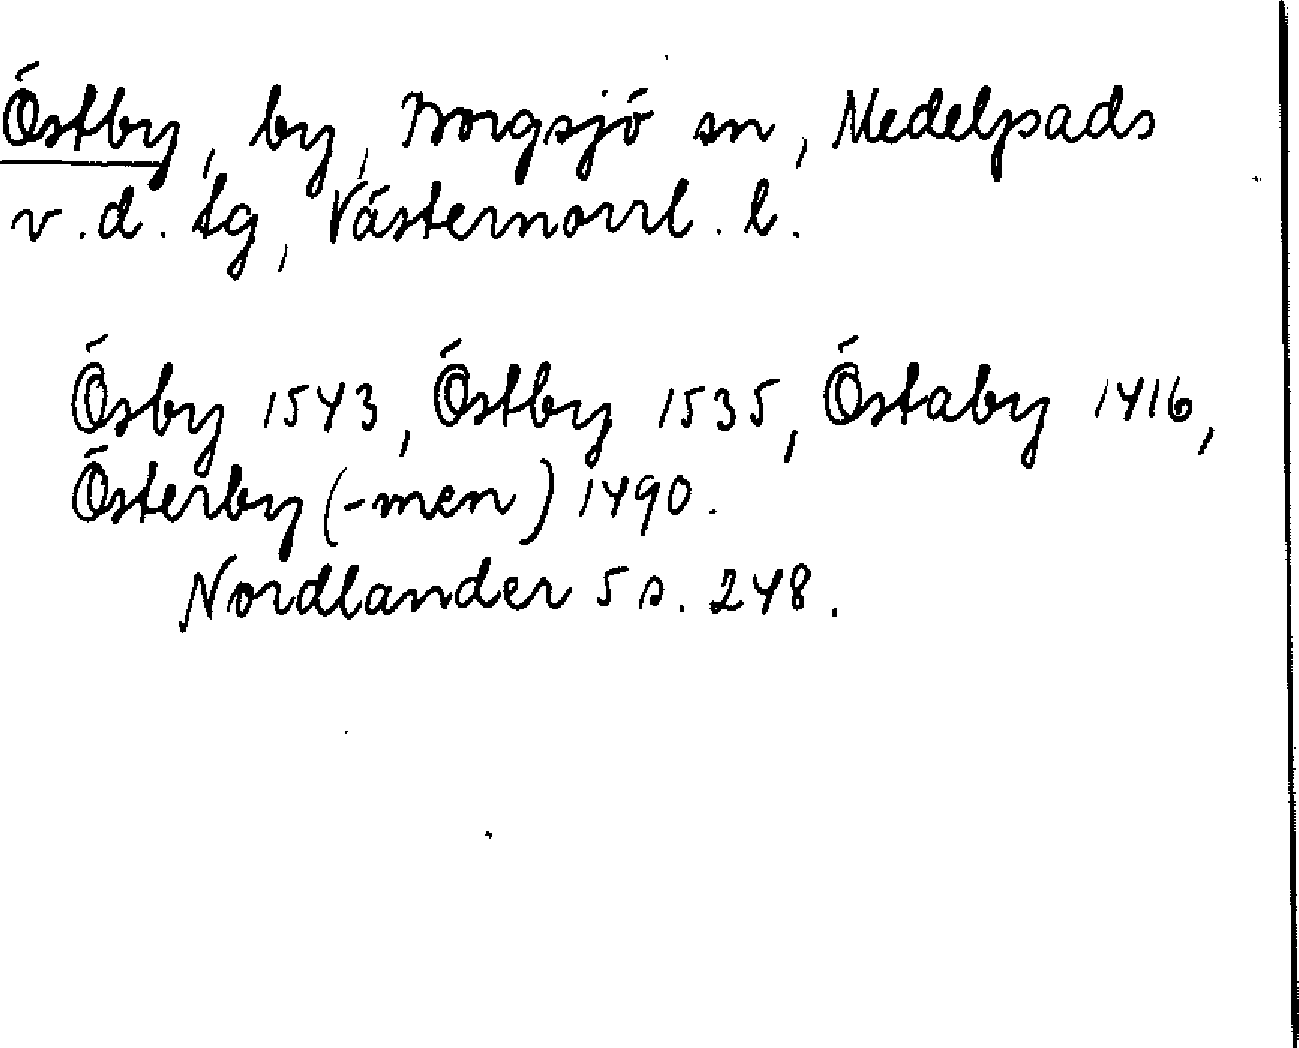 Östby, by, Borgsjö sn, Medelpads
v.d. tg, Västernorrl. l.
Ösby 1543, Östby 1535, Östaby 1416,
Österby (-men) 1490.
Nordlander 5 s. 248.